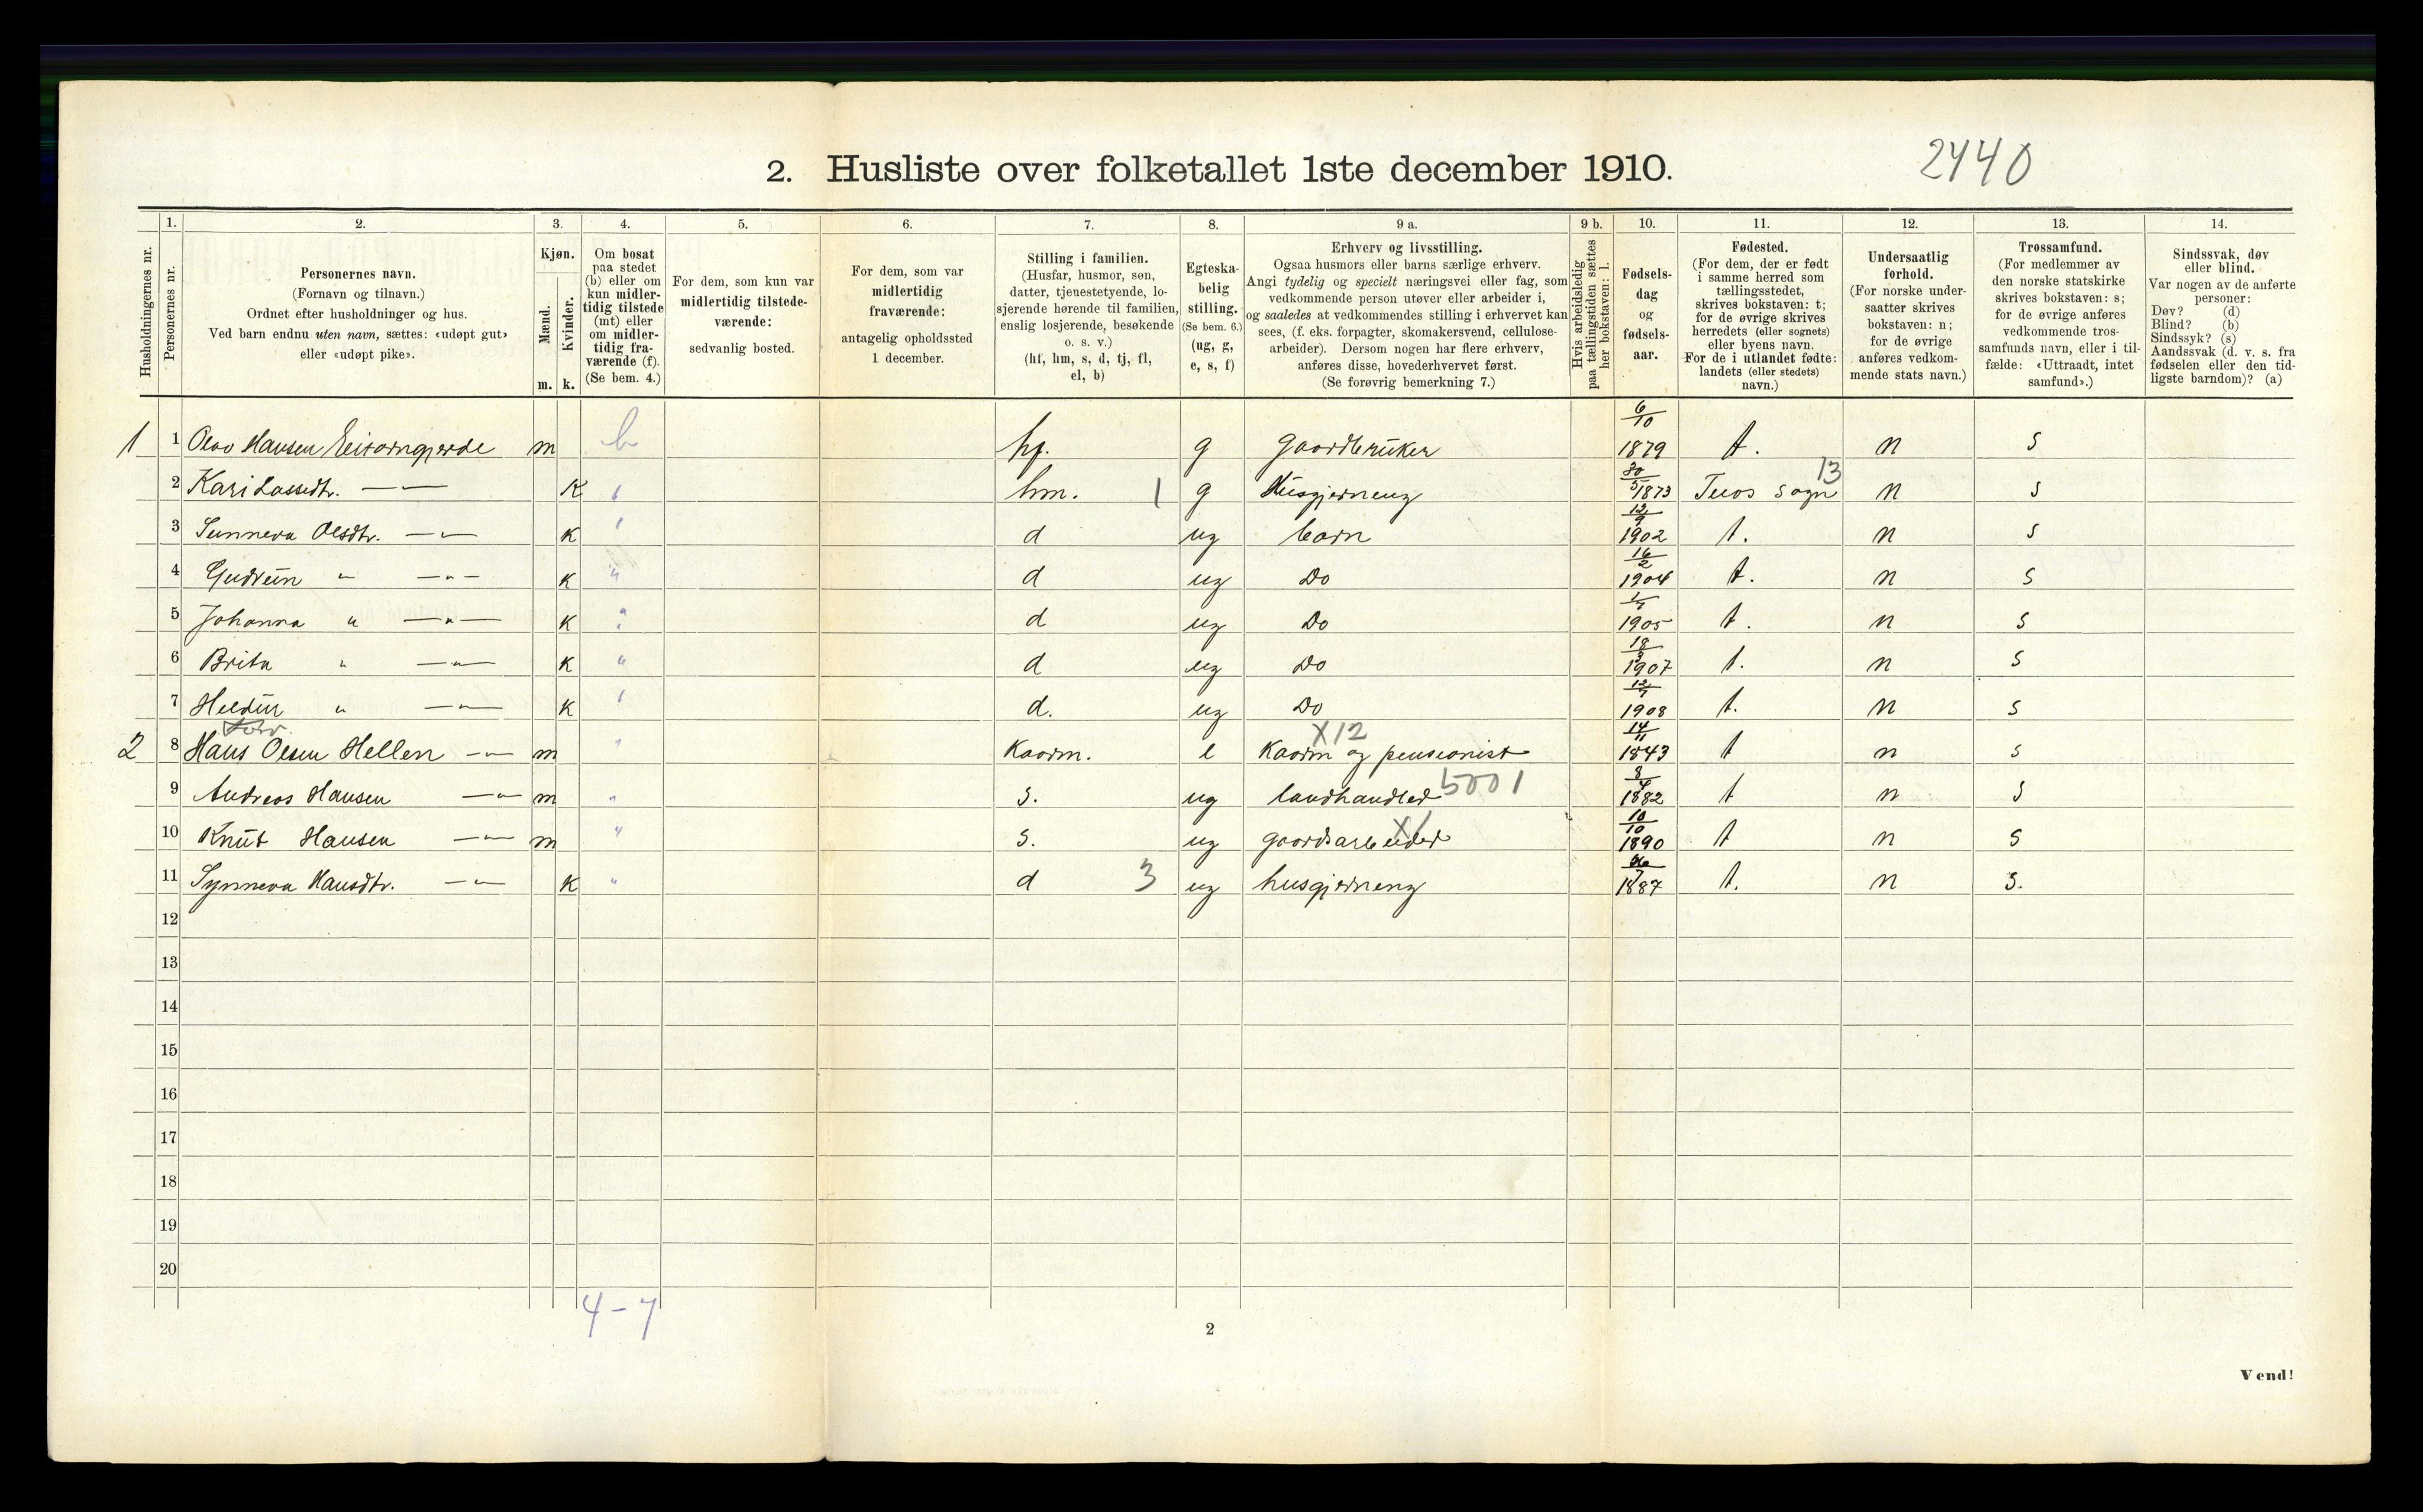 2. Husliste over folketallet 1ste december 1910.
2440
1. 2. 3. 4. 5. 6. 7. 8. 9 a. 9 b. 10. 11. 12. 13. 14.
Husholdningernes nr.
Personernes nr.
Personernes navn.
(Fornavn og tilnavn.)
Ordnet efter husholdninger og hus.
Ved barn endnu uten navn, sættes: «udøpt gut»
eller «udøpt pike».
Kjøn.
Mænd.
Kvinder.
m. k.
Om bosat
paa stedet
(b) eller om
kun midler-
tidig tilstede
(mt) eller
om midler-
tidig fra-
værende (f).
(Se bem. 4.)
For dem, som kun var
midlertidig tilstede-
værende:
sedvanlig bosted.
For dem, som var
midlertidig
fraværende:
antagelig opholdssted
1 december.
Stilling i familien.
(Husfar, husmor, søn,
datter, tjenestetyende, lo-
sjerende hørende til familien,
enslig losjerende, besøkende
o. s. v.)
(hf, hm, s, d, tj, fl,
el, b)
Egteska-
belig
stilling.
(Se bem. 6.)
(ug, g,
e, s, f)
Erhverv og livsstilling.
Ogsaa husmors eller barns særlige erhverv.
Angi tydelig og specielt næringsvei eller fag, som
vedkommende person utøver eller arbeider i,
og saaledes at vedkommendes stilling i erhvervet kan
sees, (f. eks. forpagter, skomakersvend, cellulose-
arbeider). Dersom nogen har flere erhverv,
anføres disse, hovederhvervet først.
(Se forøvrig bemerkning 7.)
Hvis arbeidsledig
paa tællingstiden sættes
her bokstaven: l.
Fødsels-
dag
og
fødsels-
aar.
Fødested.
(For dem, der er født
i samme herred som
tællingsstedet,
skrives bokstaven: t;
for de øvrige skrives
herredets (eller sognets)
eller byens navn.
For de i utlandet fødte:
landets (eller stedets)
navn.)
Undersaatlig
forhold.
(For norske under-
saatter skrives
bokstaven: n;
for de øvrige
anføres vedkom-
mende stats navn.)
Trossamfund.
(For medlemmer av
den norske statskirke
skrives bokstaven: s;
for de øvrige anføres
vedkommende tros-
samfunds navn, eller i til-
fælde: «Uttraadt, intet
samfund».)
Sindssvak, døv
eller blind.
Var nogen av de anførte
personer:
Døv? (d)
Blind? (b)
Sindssyk? (s)
Aandssvak (d. v. s. fra
fødselen eller den tid-
ligste barndom)? (a)
1 1 Olav Hansen m b hf. g gaardbruker 6/10 1879 t. n s
2 Kari Lassedtr. — " — K " hm. 1 g Husgjerning 30/5 1873 sogn 13 n s
3 Sunneva Olsdtr. — " — K " d ug barn 12/9 1902 t. n s
4 Gudrun " — " — K " d ug Do 16/2 1904 t. n s
5 Johanna " — " — K " d ug Do 1905 t. n s
6 Brita " — " — K " d ug Do 18/3 1907 t. n s
7 " — " — K " d. ug Do 1908 t. n s
2 8 Hans Olsen Hellen — " — m " Kaarm. e Kaarm og pensionist X12 14/11 1843 t n s
9 Andreas Hansen — " — m " s. ug landhandler 5001 8/4 1882 t n s
10 Knut Hansen — " — m " s. ug gaardsarbeider X1 10/10 1890 t n s
11 Synneva Hansdtr. — " — K " d 3 ug husgjerning 1887 t. n s.
12
13
14
15
16
17
18
19
20
4 - 7
2
Vend!